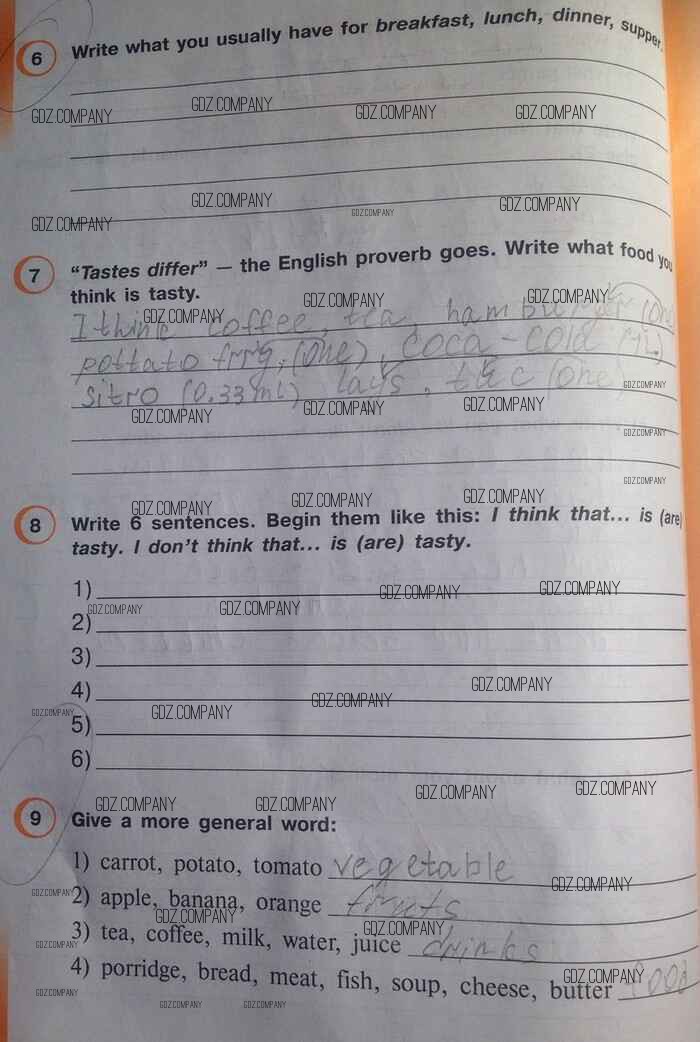 6 Write what you usually have for breakfast, lunch, dinner, supper.
GDZ.COMPANY GDZ.COMPANY GDZ.COMPANY GDZ.COMPANY
GDZ.COMPANY GDZ.COMPANY GDZ.COMPANY GDZ.COMPANY
7 "Tastes differ" — the English proverb goes. Write what food you
think is tasty. GDZ.COMPANY GDZ.COMPANY
GDZ.COMPANY
I think coffee, tea, hamburger (one)
pottato frrg, (one), coca-cola (1L)
sitro (0.33ml) lays, (one)
GDZ.COMPANY
GDZ.COMPANY GDZ.COMPANY GDZ.COMPANY
GDZ.COMPANY
GDZ.COMPANY
GDZ.COMPANY GDZ.COMPANY GDZ.COMPANY
8 Write 6 sentences. Begin them like this: I think that... is (are)
tasty. I don't think that... is (are) tasty.
1) GDZ.COMPANY GDZ.COMPANY
GDZ.COMPANY GDZ.COMPANY
2)
3)
4) GDZ.COMPANY GDZ.COMPANY
GDZ.COMPANY GDZ.COMPANY
5)
6) GDZ.COMPANY GDZ.COMPANY
GDZ.COMPANY GDZ.COMPANY
9 Give a more general word:
1) carrot, potato, tomato vegetable
GDZ.COMPANY GDZ.COMPANY
2) apple, banana, orange fruits
GDZ.COMPANY GDZ.COMPANY
3) tea, coffee, milk, water, juice drinks
GDZ.COMPANY
4) porridge, bread, meat, fish, soup, cheese, butter food
GDZ.COMPANY GDZ.COMPANY
GDZ.COMPANY GDZ.COMPANY